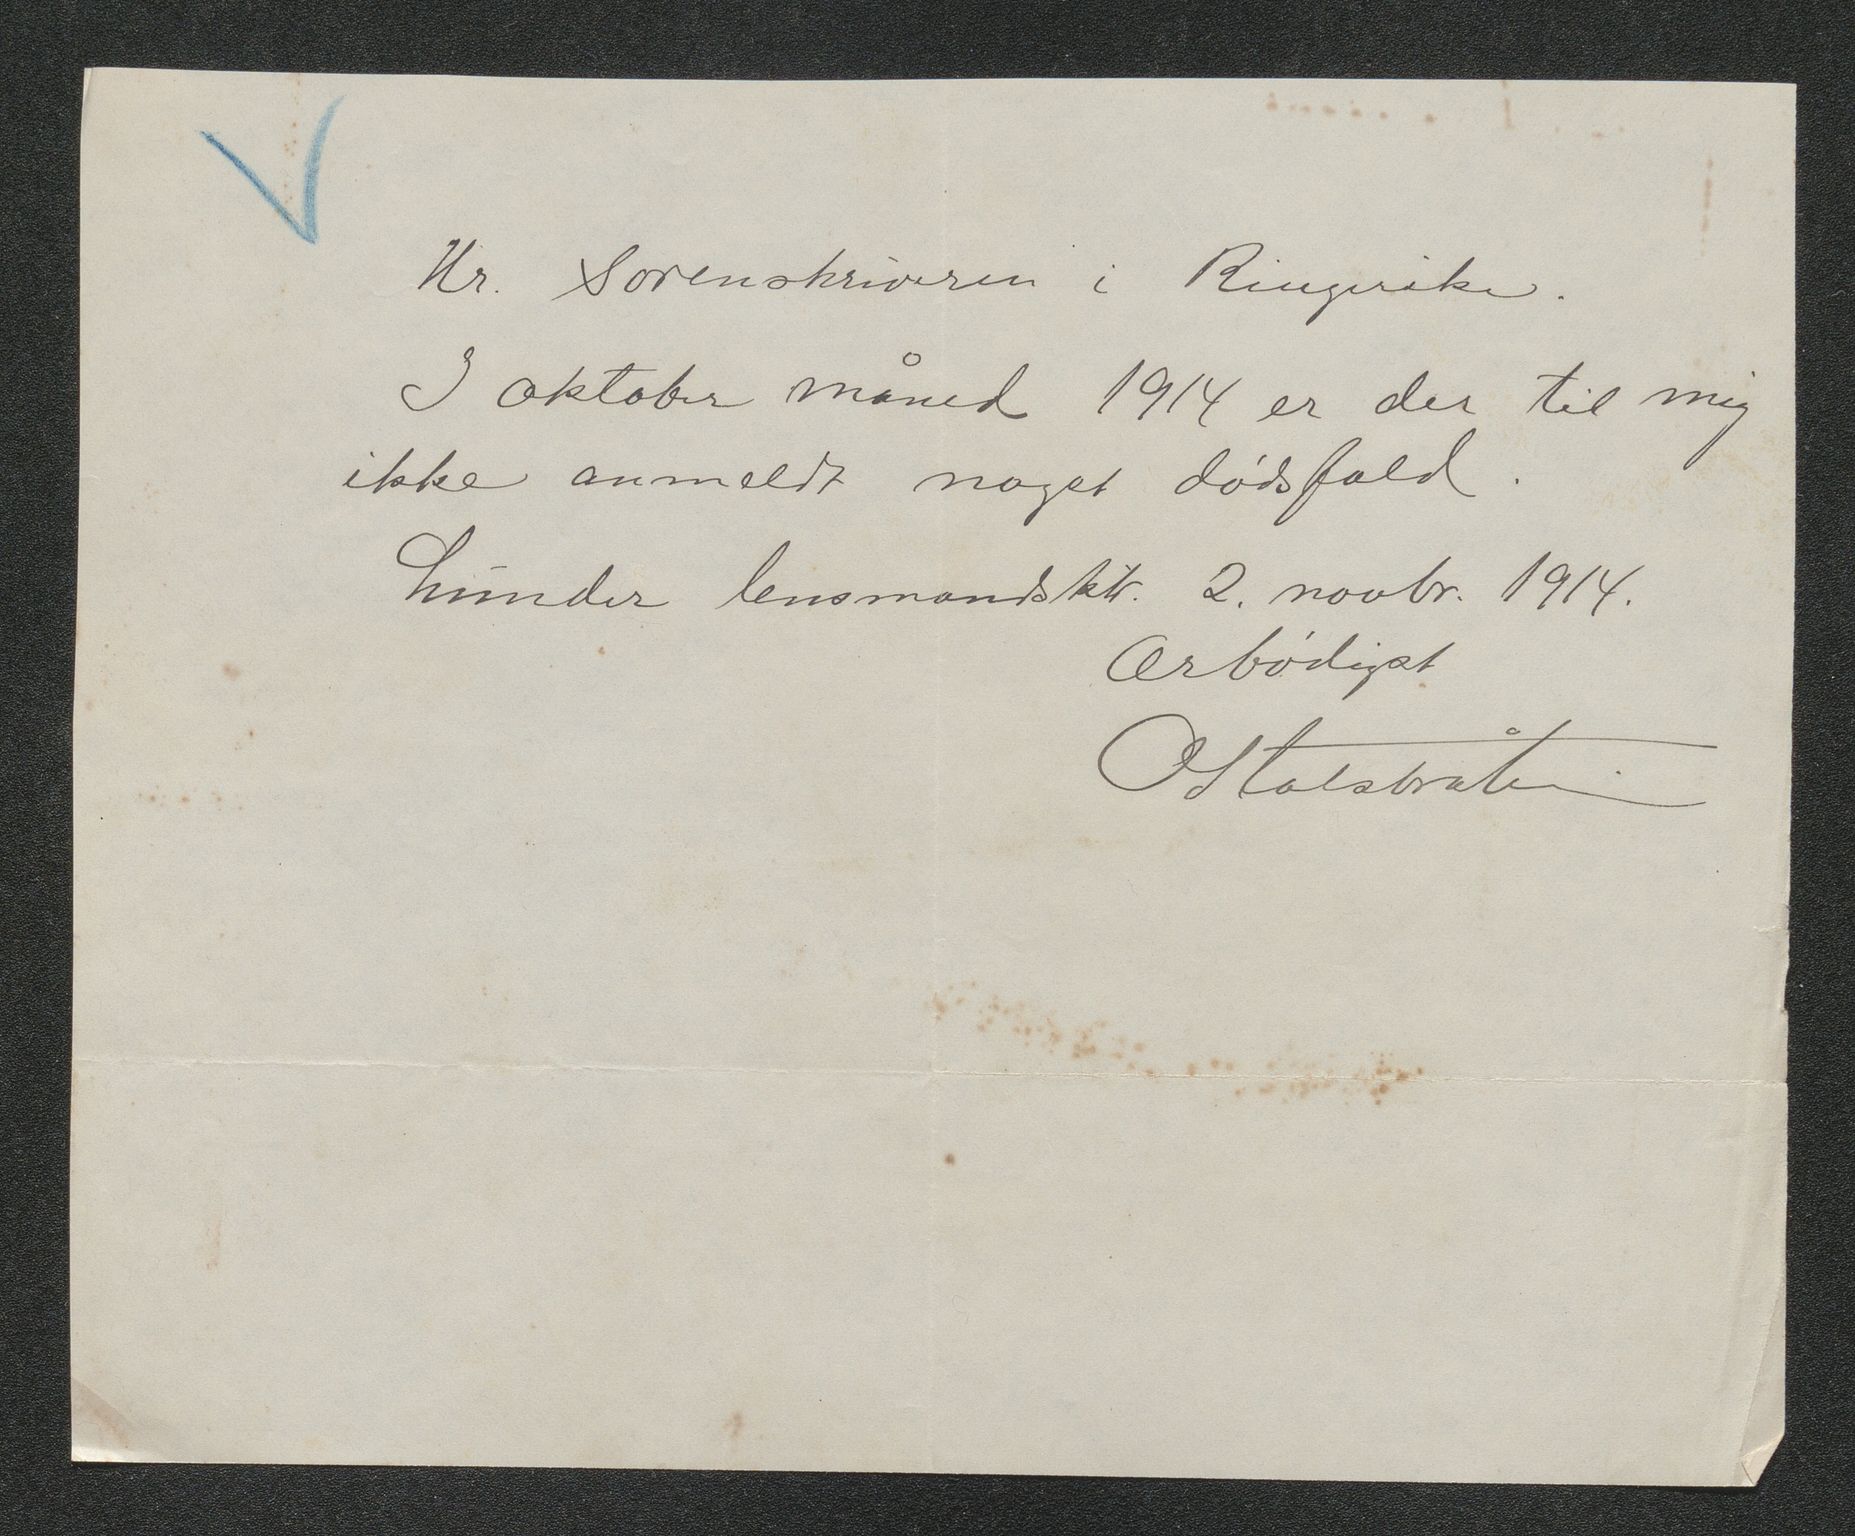 Hr. Sorenskriveren i Ringerike.
I oktober måned 1914 er der til mig
ikke anmeldt noget dødsfald.
Lunder lensmandsktr. 2. novbr. 1914.
Ærbødigst
O Stalsbråten